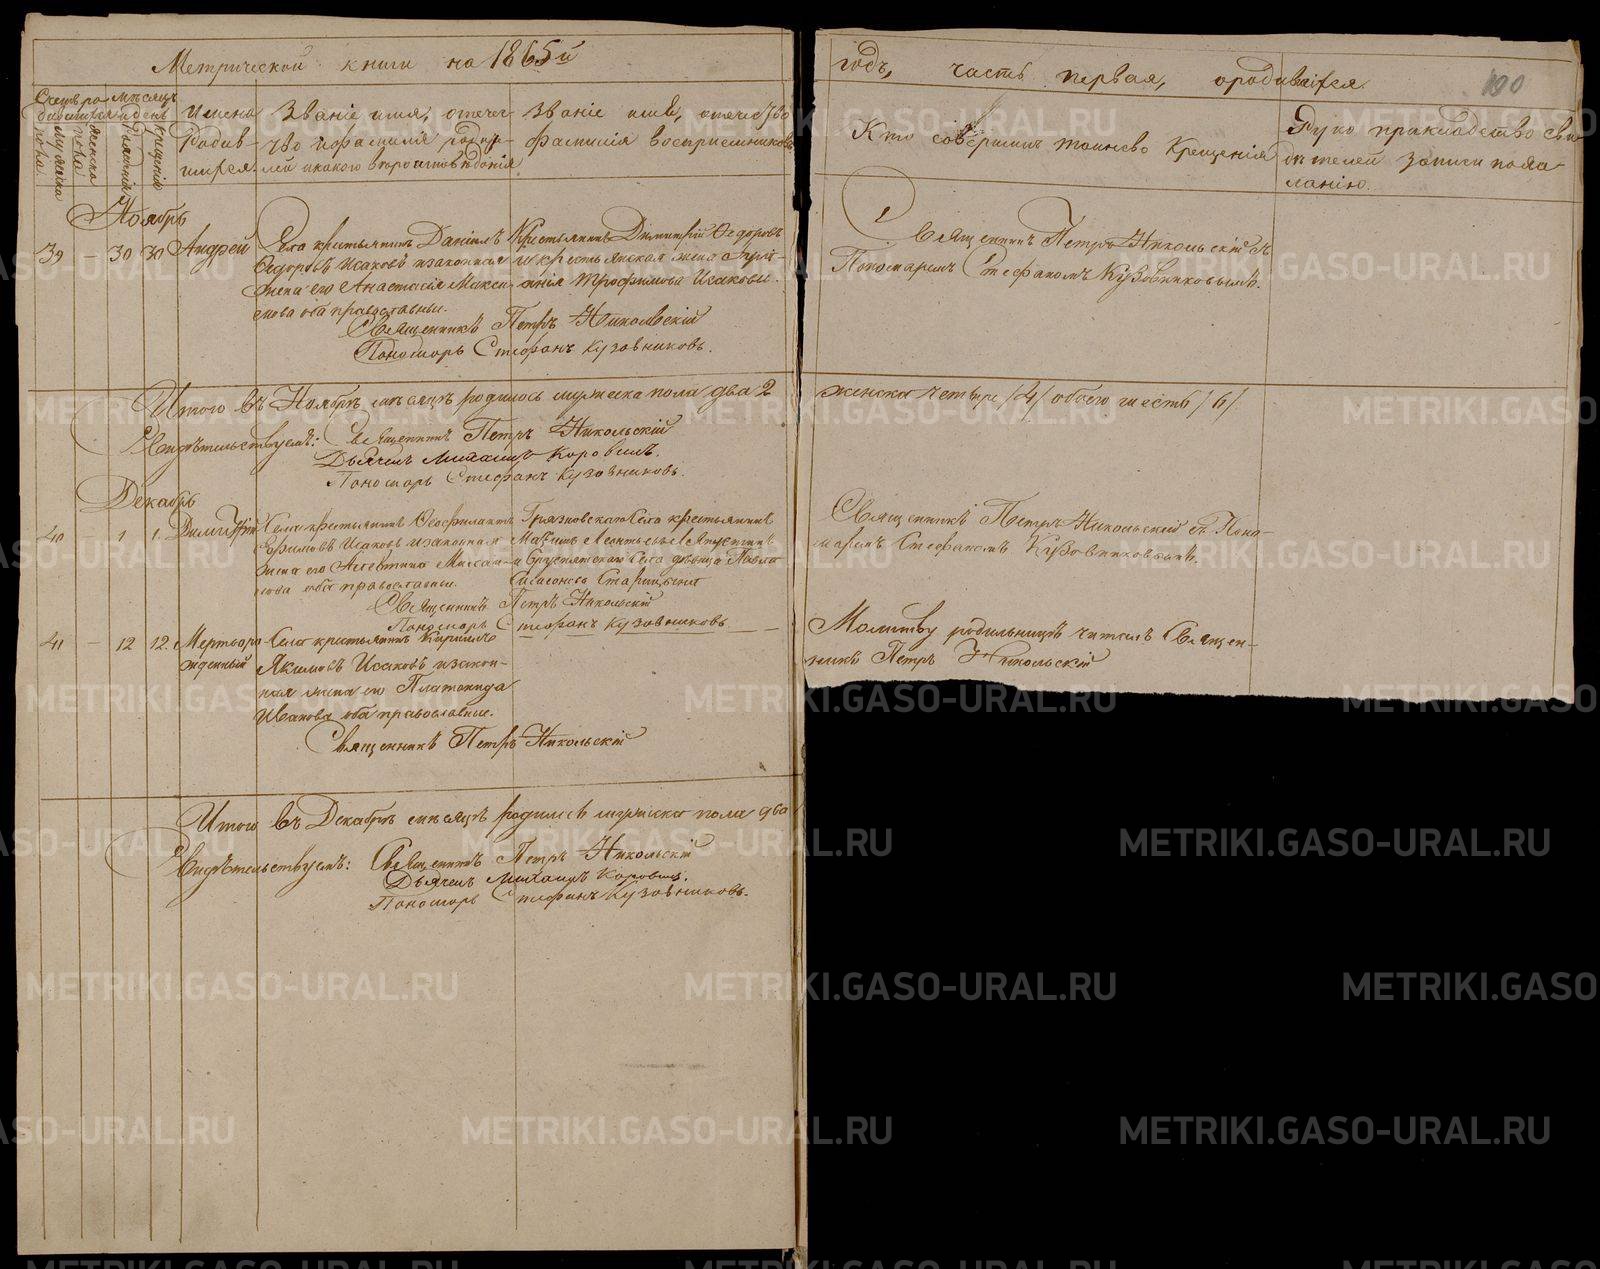 Метрической книги на 1865й
годъ, часть первая, о родившихся.
100
Счетъ ро- Мѣсяцъ
дившихся и день
мужеска пола
женска пола
рожденія
крещенія
Имена
Родив-
шихся.
Званіе имя, отече-
ство и фамилія родите-
лей и какого вѣроисповѣданія
Званіе имя, отечество
фамилія восприемниковъ
Кто совершилъ таинство Крещенія
Рукоприкладство сви-
дѣтелей записи по жела-
ланію.
Ноябрь
39 – 30 30 Андрей
Села крестьянинъ Даніилъ
Ѳедоровъ Исаковъ и законная
жена его Анастасія Макси-
мова оба православные.
Крестьянинъ Димитрій Ѳедоровъ
и крестьянская жена
Трофимова Исаковы.
Священникъ Петръ Никольскій
Пономарь Стефанъ Кузовниковъ.
Священникъ Петръ Никольскій съ
Пономаремъ Стефаномъ Кузовниковымъ.
Итого въ Ноябрѣ мѣсяцѣ родилось мужеска пола два 2
женска четыре /4/ обоего шесть /6/
Свидѣтельствуемъ: Священникъ Петръ Никольскій
Дьячекъ Михаилъ Коровинъ.
Пономарь Стефанъ Кузовниковъ.
Декабрь
40 – 1 1. Димитрій
Села крестьянинъ Ѳеофилактъ
Ефимовъ Исаковъ и законная
жена его
нова оба православные.
Грязновскаго Села крестьянинъ
Леонтьевъ
Села дѣвица
Священникъ Петръ Никольскій
Пономарь Стефанъ Кузовниковъ
Священникъ Петръ Никольскій съ Поно-
маремъ Стефаномъ Кузовниковымъ.
41 – 12 12. Мертворо-
жденный
Села крестьянинъ Кирилъ
Якимовъ Исаковъ и закон-
ная жена его Платонида
Иванова оба православные.
Священникъ Петръ Никольскій
Молитву родильницѣ читалъ Священ-
никъ Петръ Никольскій
Итого въ Декабрѣ мѣсяцѣ родилось мужеска пола два
Свидѣтельствуемъ: Священникъ Петръ Никольскій
Дьячекъ Михаилъ Коровинъ.
Пономарь Стефанъ Кузовниковъ.
METRIKI.GASO-URAL.RU